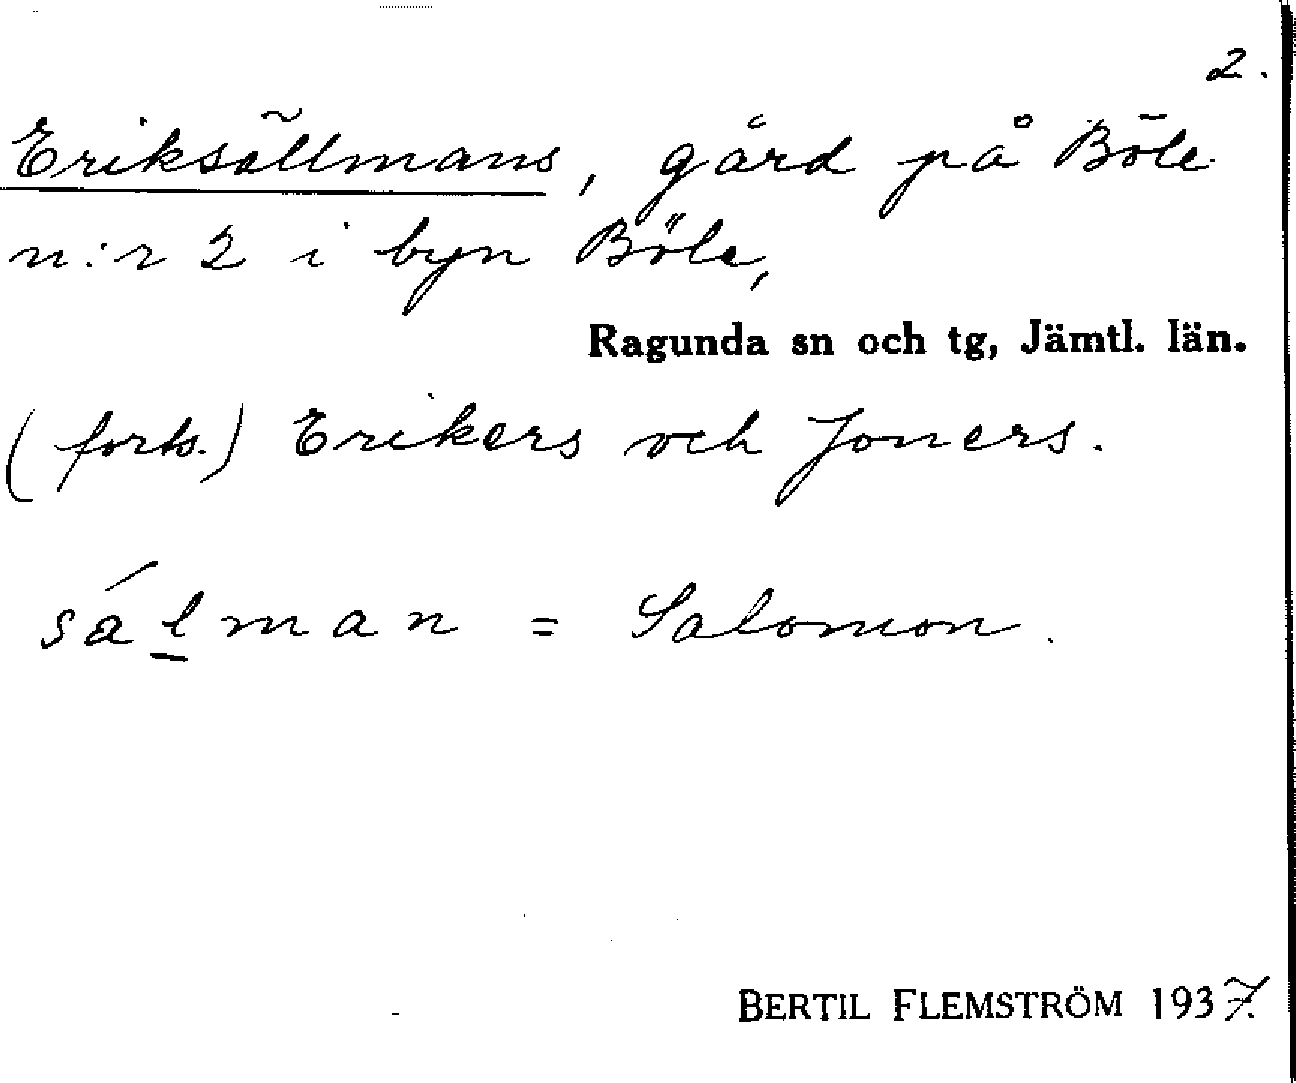 2.
Eriksällmans, gård på Böle
n:r 2 i byn Böle,
Ragunda sn och tg, Jämtl. län.
(forts.) Erikers och Joners.
sálman = Salomon.
BERTIL FLEMSTRÖM 1937.